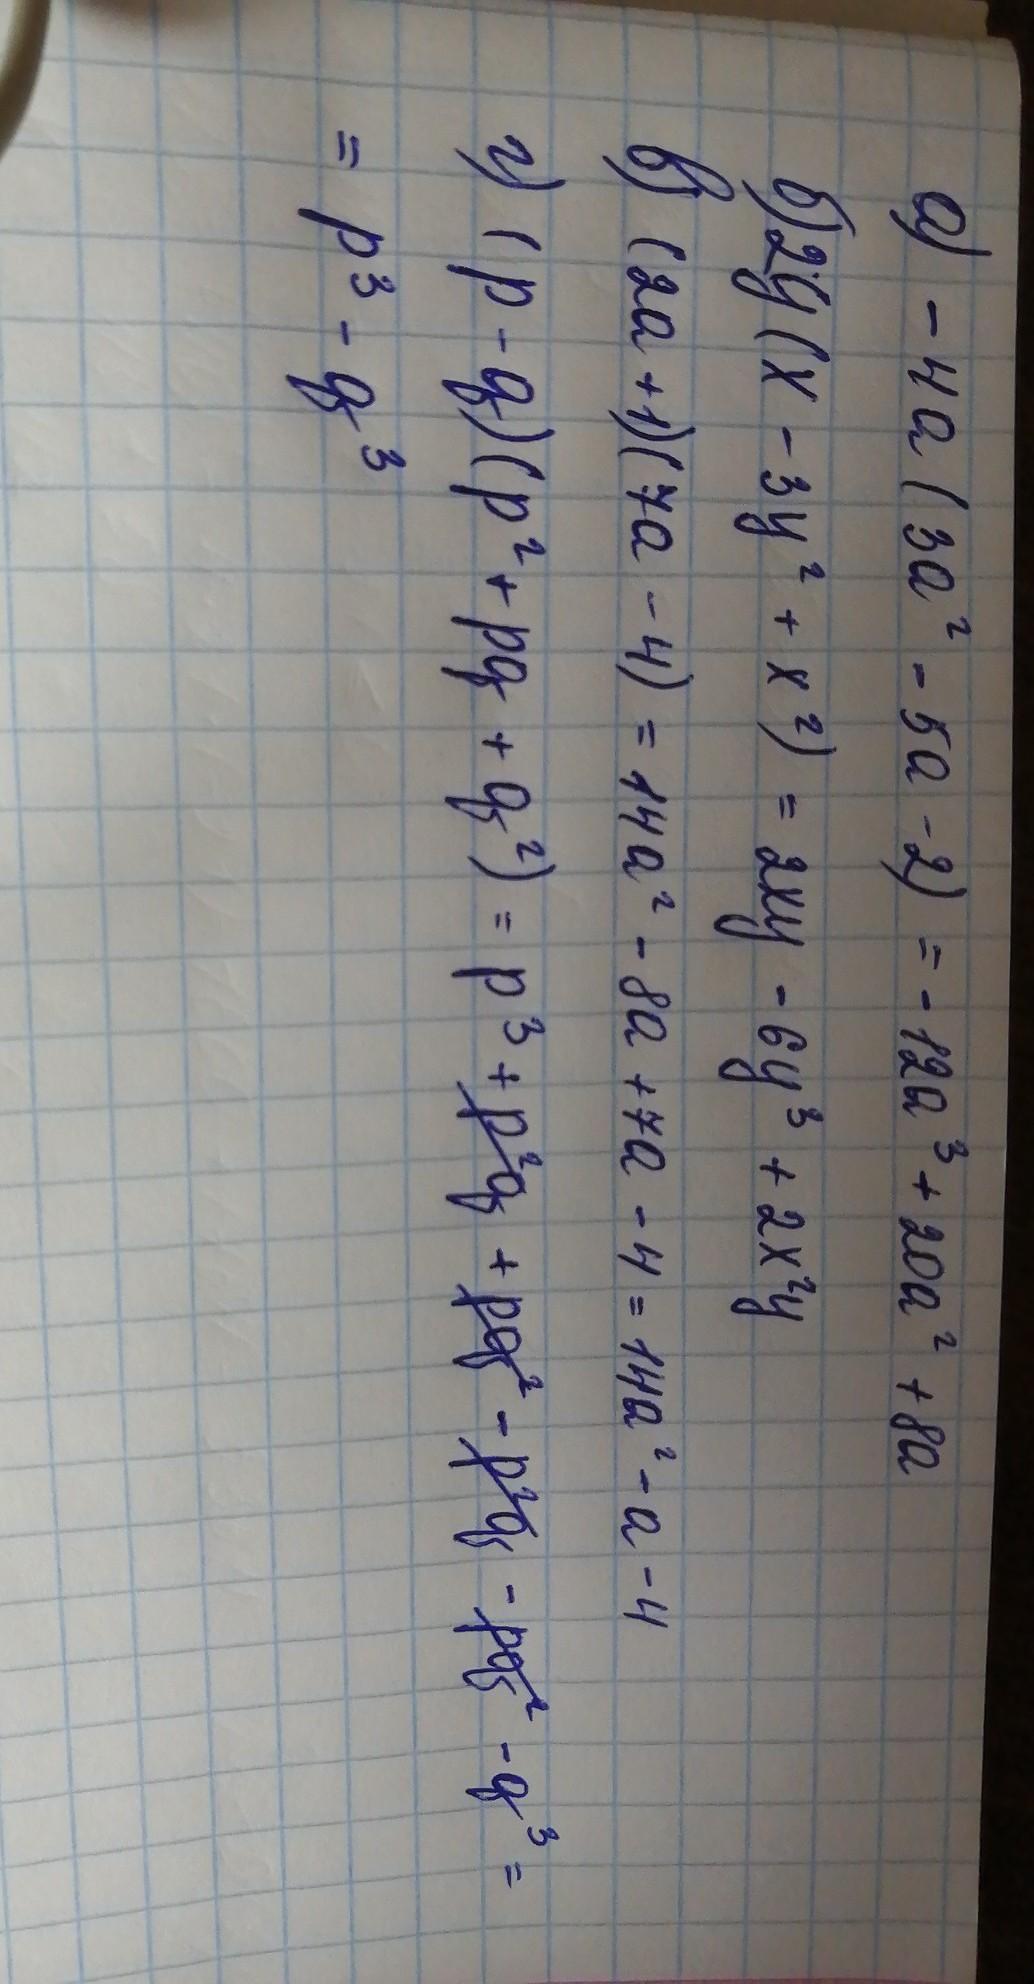 а) -4a(3a² - 5a - 2) = -12a³ + 20a² + 8a
б) 2y(x - 3y² + x²) = 2xy - 6y³ + 2x²y
в) (2a + 1)(7a - 4) = 14a² - 8a + 7a - 4 = 14a² - a - 4
г) (p - q)(p² + pq + q²) = p³ + p²q + pq² - p²q - pq² - q³ =
= p³ - q³